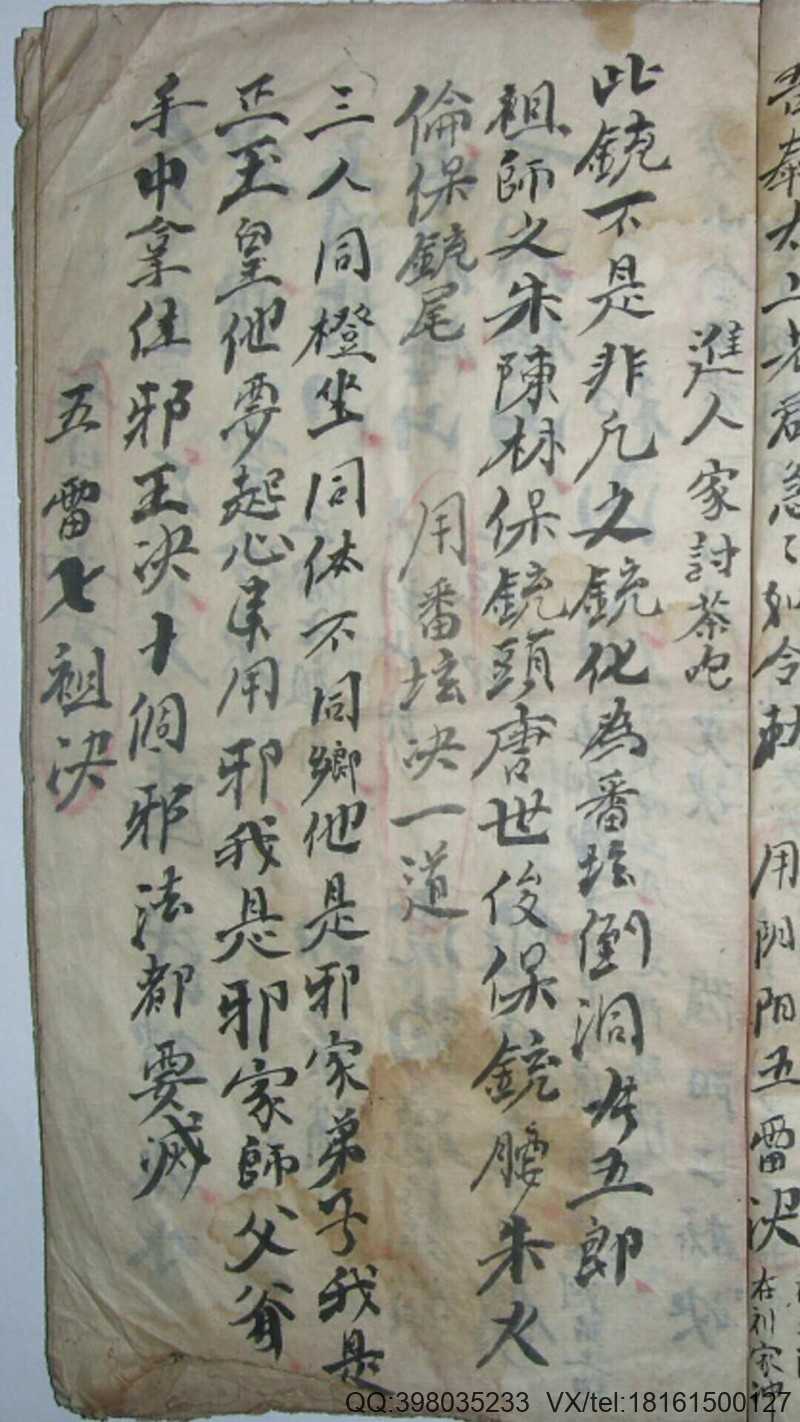 吉奉太上老君急〻如令敕 用阴阳五雷決
進人家討茶吃
此銃不是非凡之銃化為番坛倒洞 五郎
祖師之朱陳林保銃頭唐世俊保銃腰朱火
倫保銃尾 用番坛决一道
三人同橙坐同体不同鄉他是邪家弟子我是
正玉皇他要起心来用邪我是邪家師父爺
手中拿住邪王决十個邪法都要滅
五雷七祖决
QQ:398035233 VX/tel:18161500127